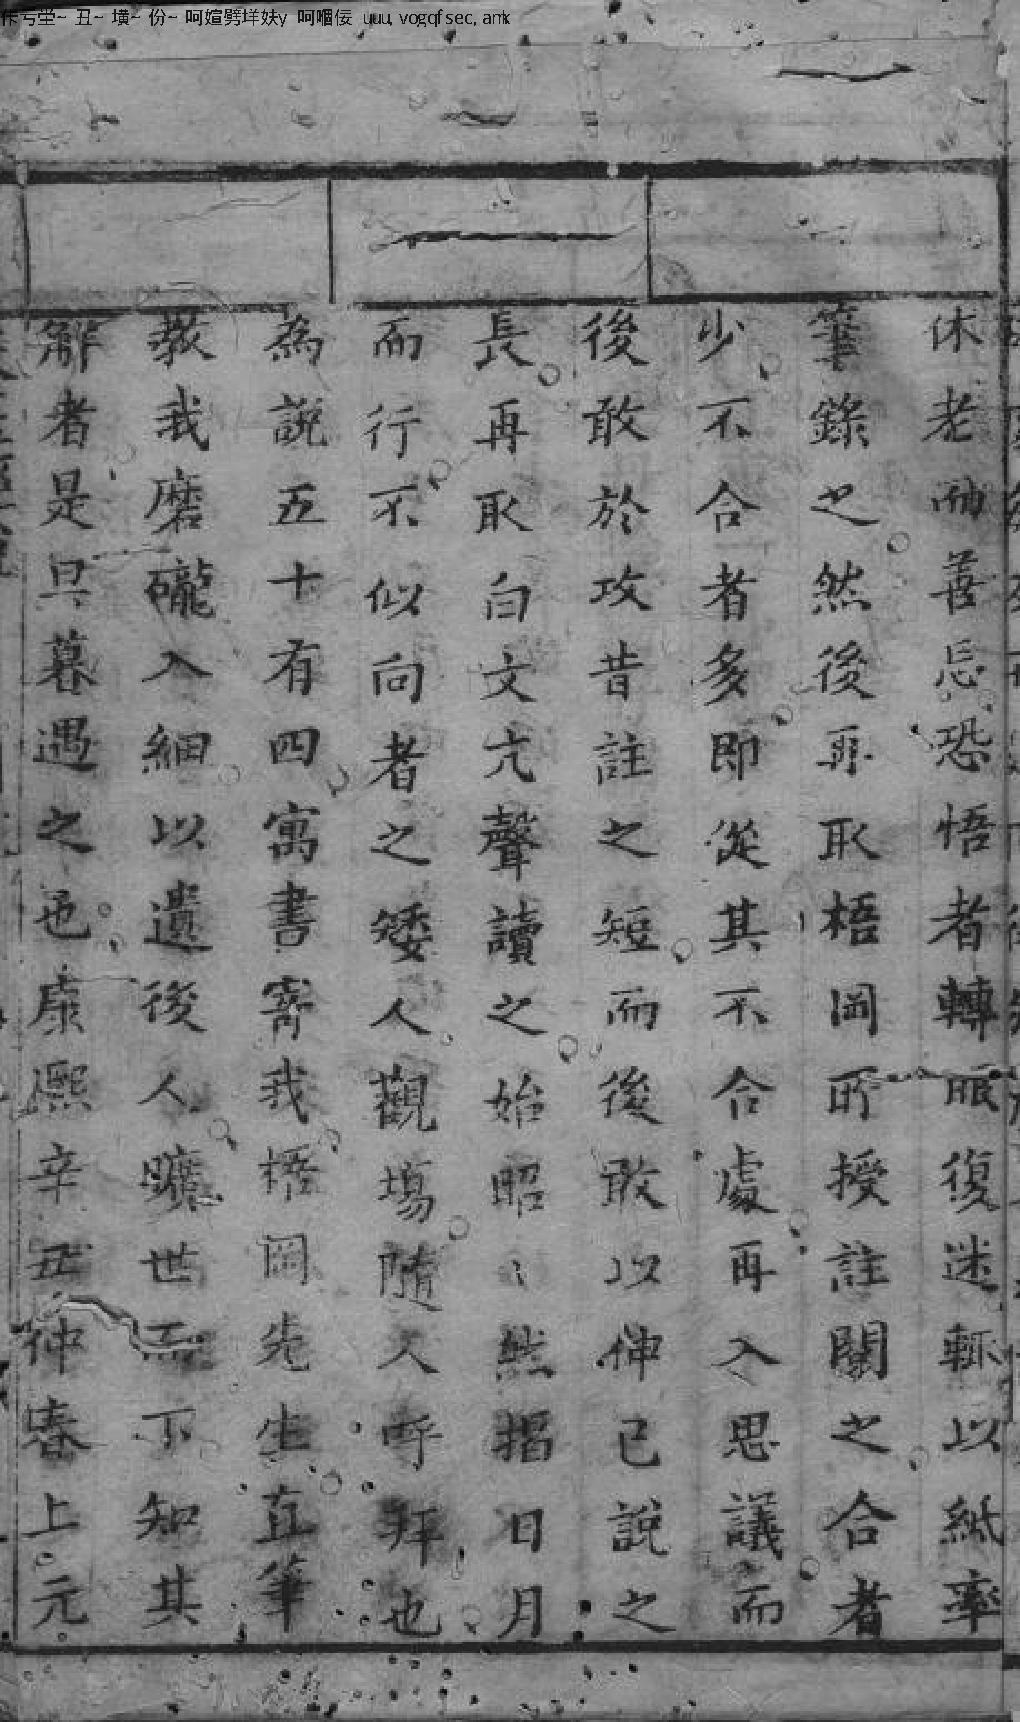 休老而善忘恐悟者轉眼復迷輒以紙率
筆錄之然後再取梧岡所授註閱之合者
少不合者多即從其不合處再入思議而
後敢於攻昔註之短而後敢以伸己說之
長再取白文亢聲讀之始昭〻然揭日月
而行不似向者之矮人觀塲隨人呼拜也
為說五十有四寓書寄我梧岡先生直筆
教我磨礲入細以遺後人曠世而下知其
解者是旦暮遇之也康熙辛丑仲春上元